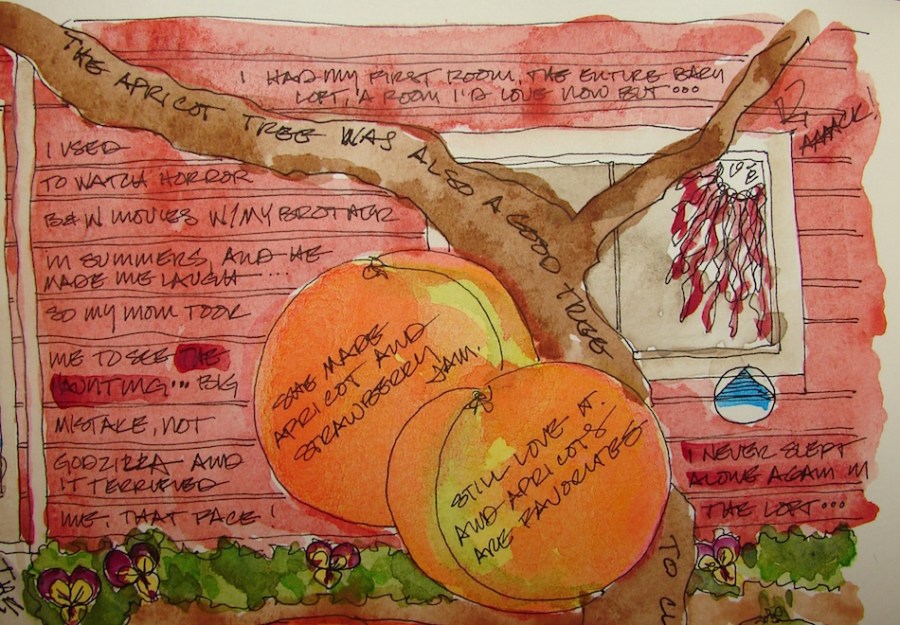 THE APRICOT TREE WAS ALSO A GOOD TREE
I HAD MY FIRST ROOM, THE ENTIRE BARN
LOFT, A ROOM I'D LOVE NOW BUT...
AAAACK!
I USED
TO WATCH HORROR
B&W MOVIES W/MY BROTHER
IN SUMMERS, AND HE
MADE ME LAUGH...
SO MY MOM TOOK
ME TO SEE THE
HAUNTING... BIG
MISTAKE, NOT
GODZILLA AND
IT TERRIFIED
ME. THAT FACE!
SHE MADE
APRICOT AND
STRAWBERRY
JAM.
STILL LOVE IT.
AND APRICOTS
ARE FAVORITES
I NEVER SLEPT
ALONE AGAIN IN
THE LOFT...
TO